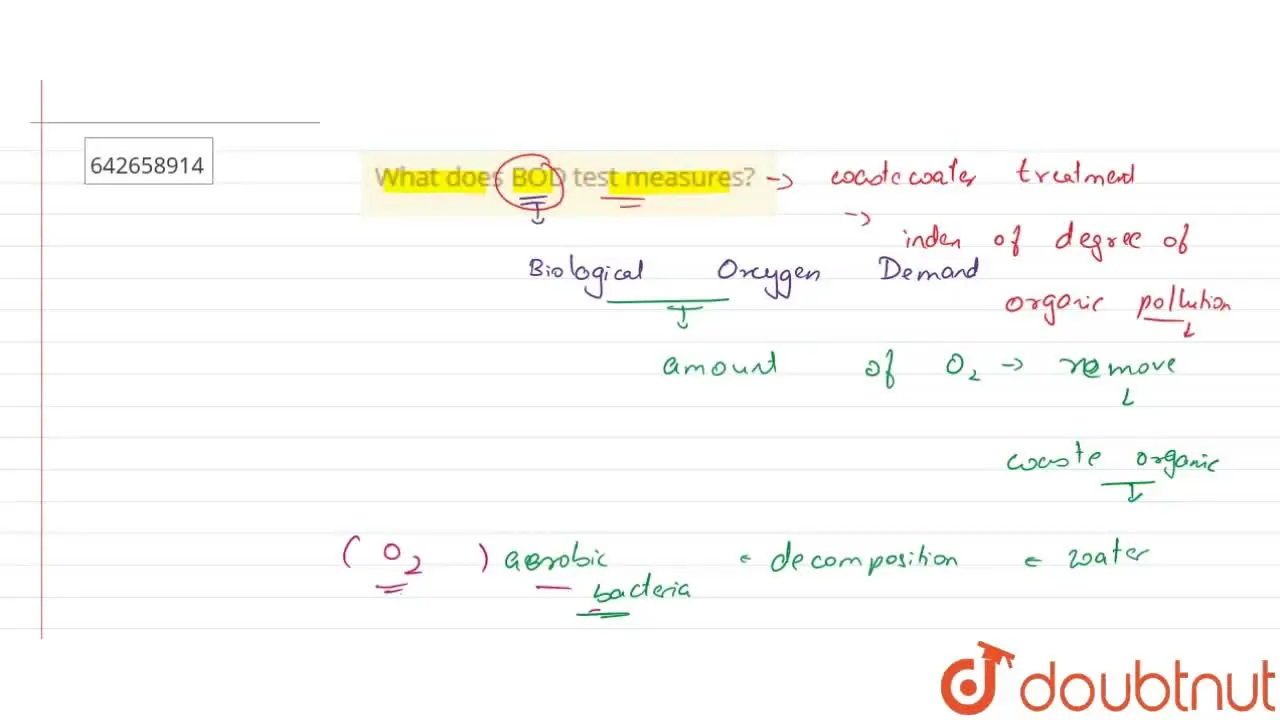 642658914
What does BOD test measures? → wastewater treatment
→ index of degree of
Biological Oxygen Demand
organic pollution
amount of O₂ → remove
waste organic
( O₂ ) aerobic ← decomposition ← water
bacteria
doubtnut